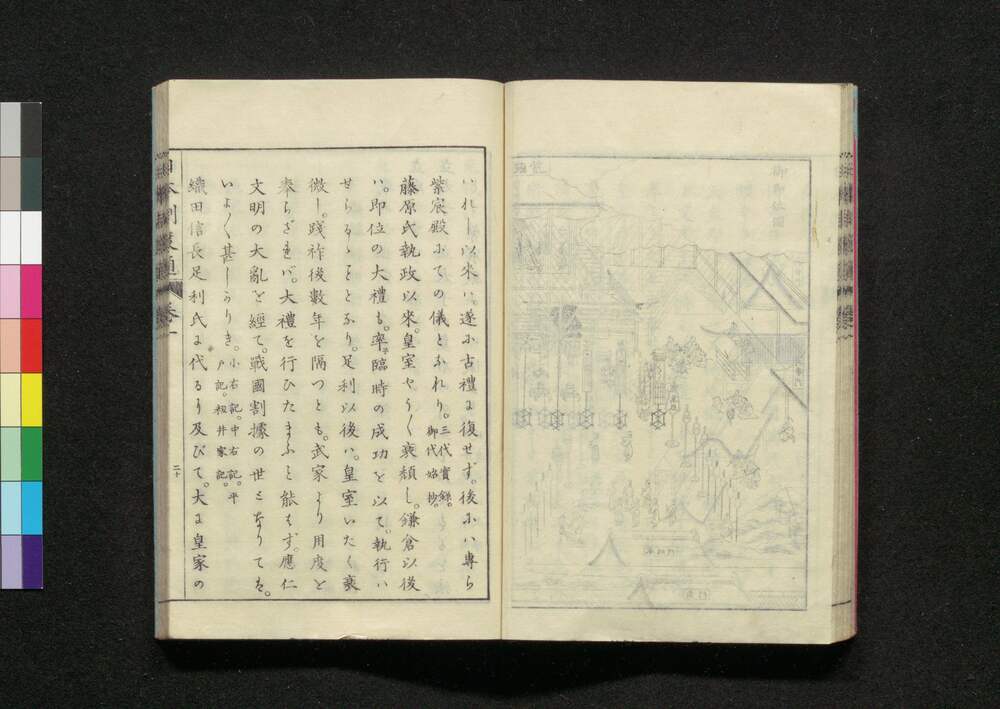 いれし以来は。遂に古禮に復せず。後にハ専ら
紫宸殿にての儀となれり。三代實錄。
御代始抄。
藤原氏執政以來。皇室やう〳〵衰頽し。鎌倉以後
ハ。即位の大禮も。率臨時の成功を以て。執行ハ
せらるゝことゝなり。足利以後ハ。皇室いたく衰
微し。踐祚後數年を隔つとも。武家より用度を
奉らざれバ。大禮を行ひたまふこと能はず。應仁
文明の大亂を經て。戰國割據の世となりては。
いよ〳〵甚しかりき。小右記。中右記。平
戸記。相井家記。
織田信長足利氏に代るに及びて。大に皇家の
日本制度通
卷一
二十